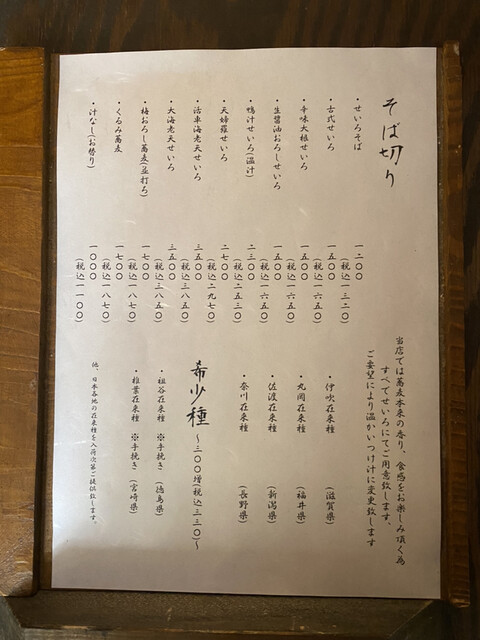 そば切り
・せいろそば 一二〇〇
(税込一三二〇)
・古式せいろ 一五〇〇
(税込一六五〇)
・辛味大根せいろ 一五〇〇
(税込一六五〇)
・生醤油おろしせいろ 一五〇〇
(税込一六五〇)
・鴨汁せいろ(温汁) 二三〇〇
(税込二五三〇)
・天婦羅せいろ 二七〇〇
(税込二九七〇)
・活車海老天せいろ 三五〇〇
(税込三八五〇)
・大海老天せいろ 三五〇〇
(税込三八五〇)
・梅おろし蕎麦(並打ち) 一七〇〇
(税込一八七〇)
・くるみ蕎麦 一七〇〇
(税込一八七〇)
・汁なし(お替り) 一〇〇〇
(税込一一〇〇)
当店では蕎麦本来の香り、食感をお楽しみ頂く為
すべてせいろにてご用意致します。
ご要望により温かいつけ汁に変更致します
・伊吹在来種 (滋賀県)
・丸岡在来種 (福井県)
・佐渡在来種 (新潟県)
・奈川在来種 (長野県)
希少種 ～三〇〇増税込三三〇～
・祖谷在来種 ※手挽き (徳島県)
・椎葉在来種 ※手挽き (宮崎県)
他、日本各地の在来種を入荷次第ご提供致します。